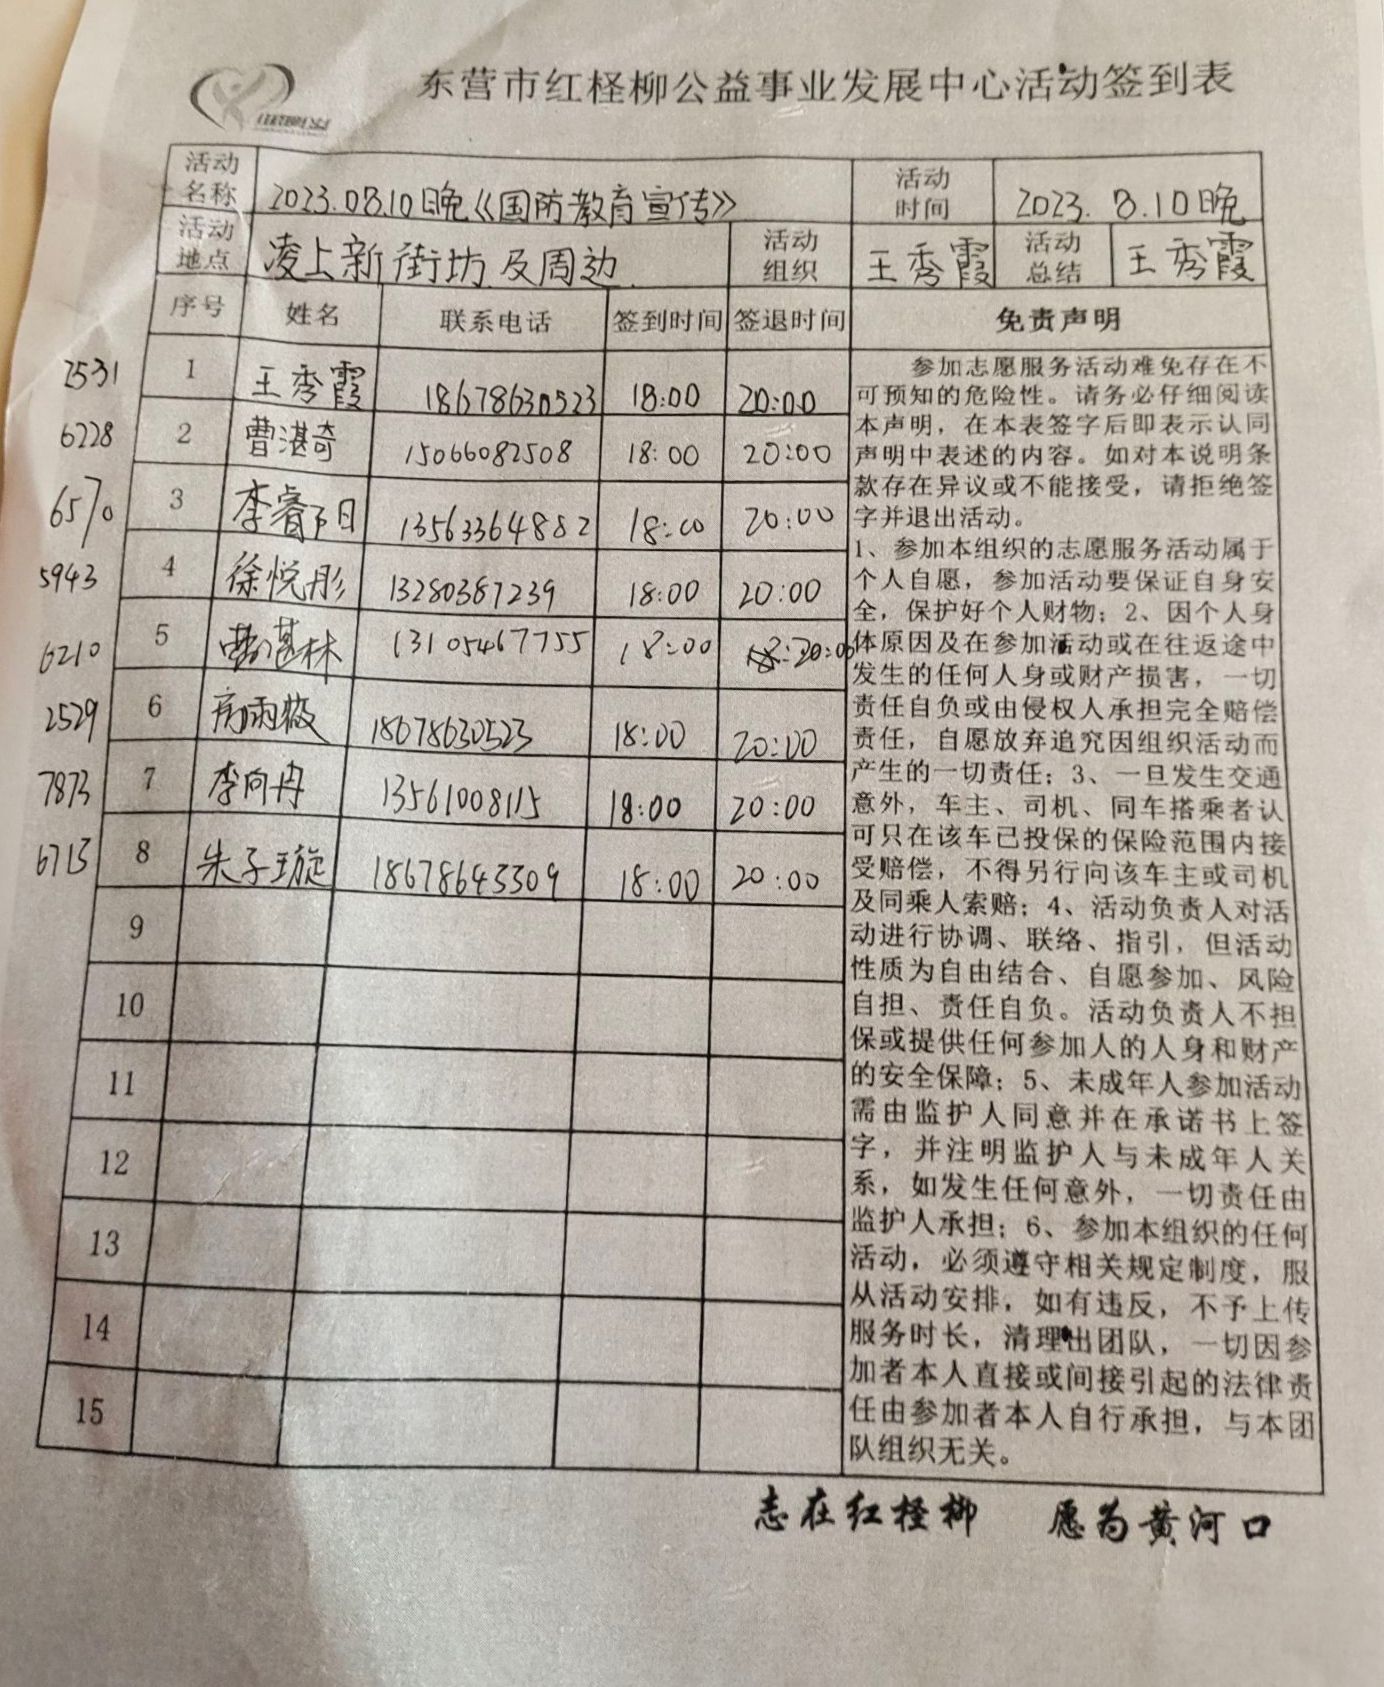 东营市红柽柳公益事业发展中心活动签到表
活动名称 2023.08.10晚《国防教育宣传》 活动时间 2023.8.10晚
活动地点 凌上新街坊及周边 活动组织 王秀霞 活动总结 王秀霞
序号 姓名 联系电话 签到时间 签退时间 免责声明
2531 1 王秀霞 18678630523 18:00 20:00
6228 2 曹湛奇 15066082508 18:00 20:00
6570 3 李睿 13563364882 18:00 20:00
5943 4 徐悦彤 13280387239 18:00 20:00
6210 5 林 13105467755 18:00 20:00
2529 6 18678630523 18:00 20:00
7873 7 李向冉 13561008115 18:00 20:00
6715 8 朱子璇 18678643309 18:00 20:00
9
10
11
12
13
14
15
参加志愿服务活动难免存在不
可预知的危险性。请务必仔细阅读
本声明，在本表签字后即表示认同
声明中表述的内容。如对本说明条
款存在异议或不能接受，请拒绝签
字并退出活动。
1、参加本组织的志愿服务活动属于
个人自愿，参加活动要保证自身安
全，保护好个人财物；2、因个人身
体原因及在参加活动或在往返途中
发生的任何人身或财产损害，一切
责任自负或由侵权人承担完全赔偿
责任，自愿放弃追究因组织活动而
产生的一切责任；3、一旦发生交通
意外，车主、司机、同车搭乘者认
可只在该车已投保的保险范围内接
受赔偿，不得另行向该车主或司机
及同乘人索赔；4、活动负责人对活
动进行协调、联络、指引，但活动
性质为自由结合、自愿参加、风险
自担、责任自负。活动负责人不担
保或提供任何参加人的人身和财产
的安全保障；5、未成年人参加活动
需由监护人同意并在承诺书上签
字，并注明监护人与未成年人关
系，如发生任何意外，一切责任由
监护人承担；6、参加本组织的任何
活动，必须遵守相关规定制度，服
从活动安排，如有违反，不予上传
服务时长，清理出团队，一切因参
加者本人直接或间接引起的法律责
任由参加者本人自行承担，与本团
队组织无关。
志在红柽柳 愿为黄河口